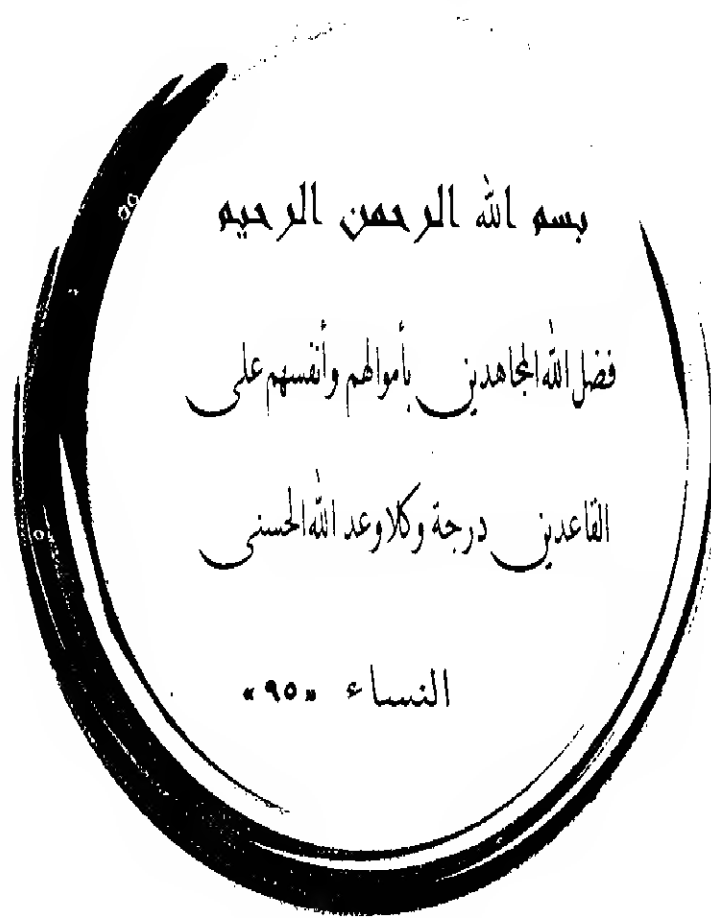 بسم الله الرحمن الرحيم
فضل الله المجاهدين بأموالهم وأنفسهم على
القاعدين درجة وكلا وعد الله الحسنى
النساء «٩٥»